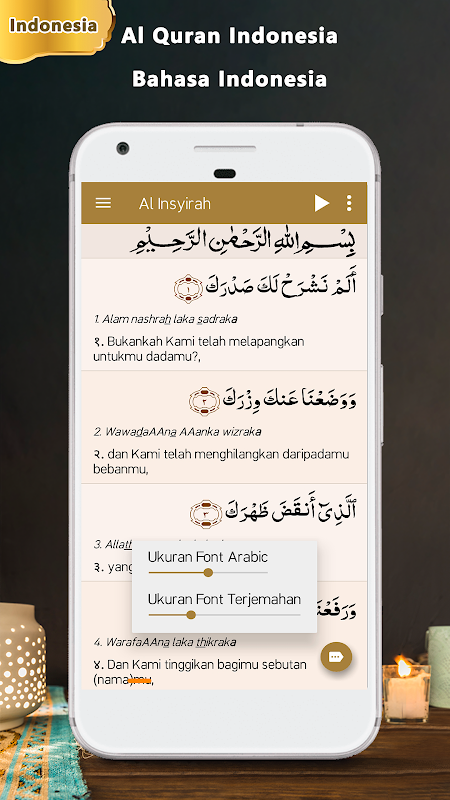 Indonesia
Al Quran Indonesia
Bahasa Indonesia
Al Insyirah
بِسْمِ اللهِ الرَّحْمٰنِ الرَّحِيْمِ
أَلَمْ نَشْرَحْ لَكَ صَدْرَكَ ١
1. Alam nashrah laka sadraka
١. Bukankah Kami telah melapangkan
untukmu dadamu?,
وَوَضَعْنَا عَنكَ وِزْرَكَ ٢
2. WawadaAAna AAanka wizraka
٢. dan Kami telah menghilangkan daripadamu
bebanmu,
ٱلَّذِىٓ أَنقَضَ ظَهْرَكَ ٣
3. Allath
٣. yang
Ukuran Font Arabic
Ukuran Font Terjemahan
وَرَفَعْنَا
4. WarafaAAna laka thikraka
٤. Dan Kami tinggikan bagimu sebutan
(nama)mu,